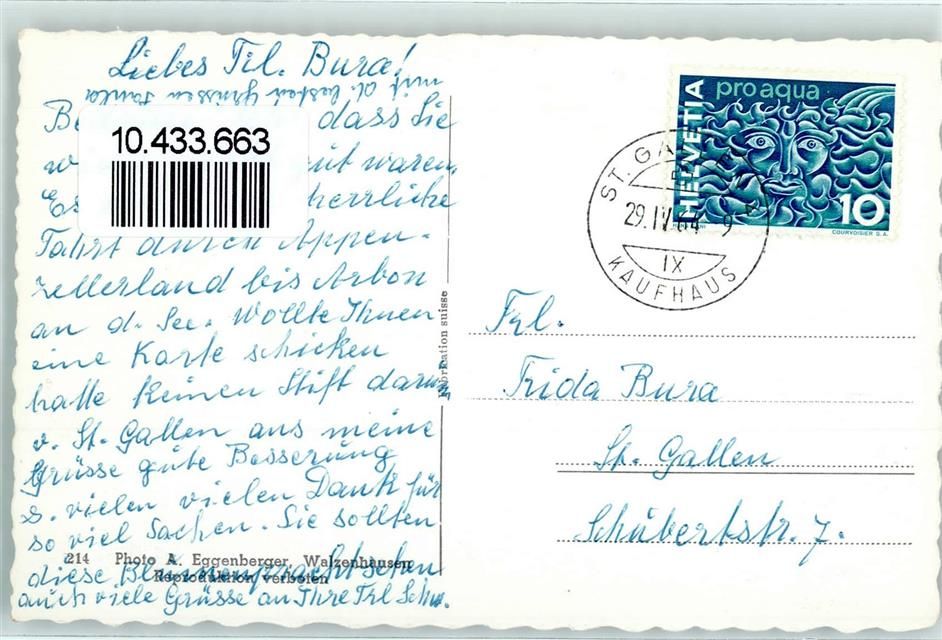 Liebes Frl. Bura!
mit d. besten Grüssen
dass Sie
gut waren.
Es herrliche
Fahrt durch Appen-
zellerland bis Arbon
an d. See. Wollte Ihnen
eine Karte schicken
hatte keinen Stift darum
v. St. Gallen aus meine
Grüsse gute Besserung
u. vielen vielen Dank für
so viel Sachen. Sie sollten
diese Blumenpracht sehen
auch viele Grüsse an Ihre Frl Schw.
10.433.663
214 Photo A. Eggenberger, Walzenhausen
Reproduktion verboten
Fabrication suisse
HELVETIA
pro aqua
10
COURVOISIER S.A.
ST. GALLEN
29.IV.64 - 9
IX
KAUFHAUS
Frl.
Frida Bura
St. Gallen
Schubertstr. 7.